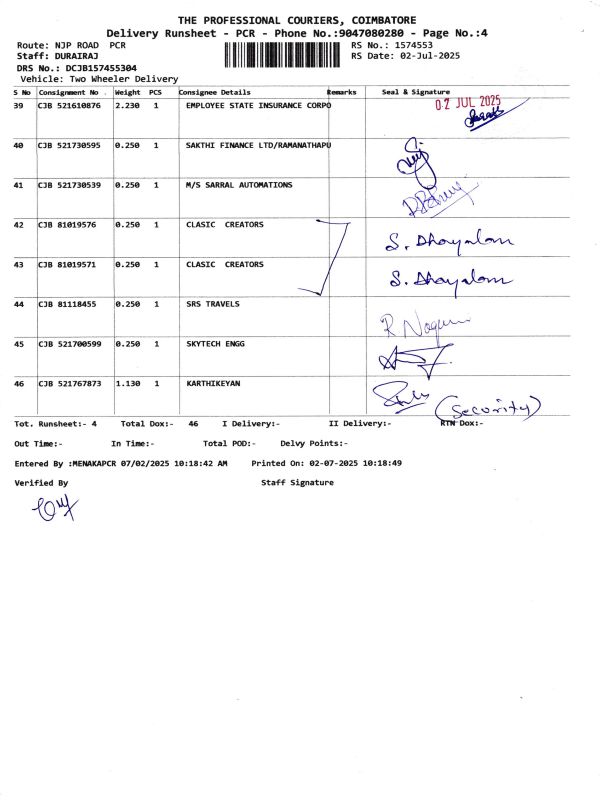 THE PROFESSIONAL COURIERS, COIMBATORE
Delivery Runsheet - PCR - Phone No.:9047080280 - Page No.:4
Route: NJP ROAD PCR RS No.: 1574553
Staff: DURAIRAJ RS Date: 02-Jul-2025
DRS No.: DCJB157455304
Vehicle: Two Wheeler Delivery
S No Consignment No Weight PCS Consignee Details Remarks Seal & Signature
39 CJB 521610876 2.230 1 EMPLOYEE STATE INSURANCE CORPO 02 JUL 2025
40 CJB 521730595 0.250 1 SAKTHI FINANCE LTD/RAMANATHAPU
41 CJB 521730539 0.250 1 M/S SARRAL AUTOMATIONS
42 CJB 81019576 0.250 1 CLASIC CREATORS S. Dhayalan
43 CJB 81019571 0.250 1 CLASIC CREATORS S. Dhayalan
44 CJB 81118455 0.250 1 SRS TRAVELS
45 CJB 521700599 0.250 1 SKYTECH ENGG
46 CJB 521767873 1.130 1 KARTHIKEYAN (Security)
Tot. Runsheet:- 4 Total Dox:- 46 I Delivery:- II Delivery:- RTN Dox:-
Out Time:- In Time:- Total POD:- Delvy Points:-
Entered By :MENAKAPCR 07/02/2025 10:18:42 AM Printed On: 02-07-2025 10:18:49
Verified By Staff Signature